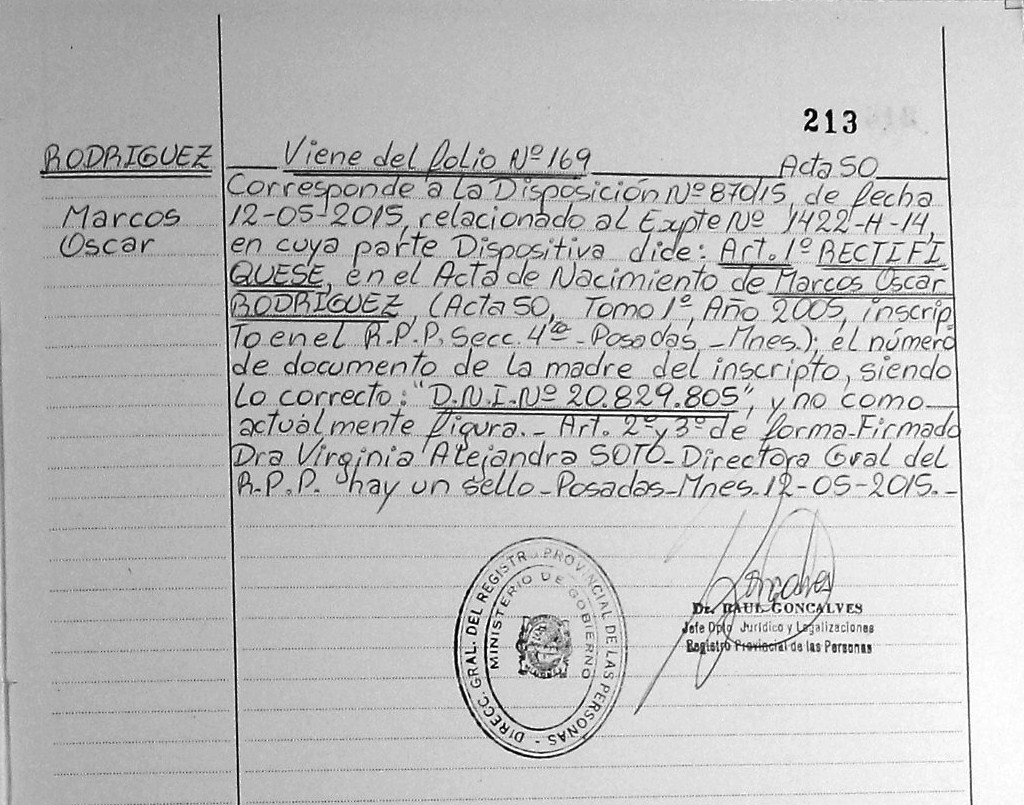 213
RODRIGUEZ
Marcos
Oscar
Viene del folio Nº 169 Acta 50
Corresponde a la Disposición Nº 870/15, de fecha
12-05-2015, relacionado al Expte Nº 1422-H-14,
en cuya parte Dispositiva dice: Art. 1º RECTIFI
QUESE, en el Acta de Nacimiento de Marcos Oscar
RODRIGUEZ, (Acta 50, Tomo 1º, Año 2005, inscrip
to en el R.P.P. Secc. 4ta - Posadas - Mnes.); el número
de documento de la madre del inscripto, siendo
lo correcto: "D.N.I. Nº 20.829.805", y no como
actualmente figura.- Art. 2º y 3º de forma-Firmado
Dra Virginia Alejandra SOTO-Directora Gral del
R.P.P. hay un sello-Posadas-Mnes. 12-05-2015.-
DIRECC. GRAL. DEL REGISTR. PROVINCIAL DE LAS PERSONAS -
MINISTERIO DE GOBIERNO
Goncalves
Dr. RAUL GONCALVES
Jefe Dpto Jurídico y Legalizaciones
Registro Provincial de las Personas